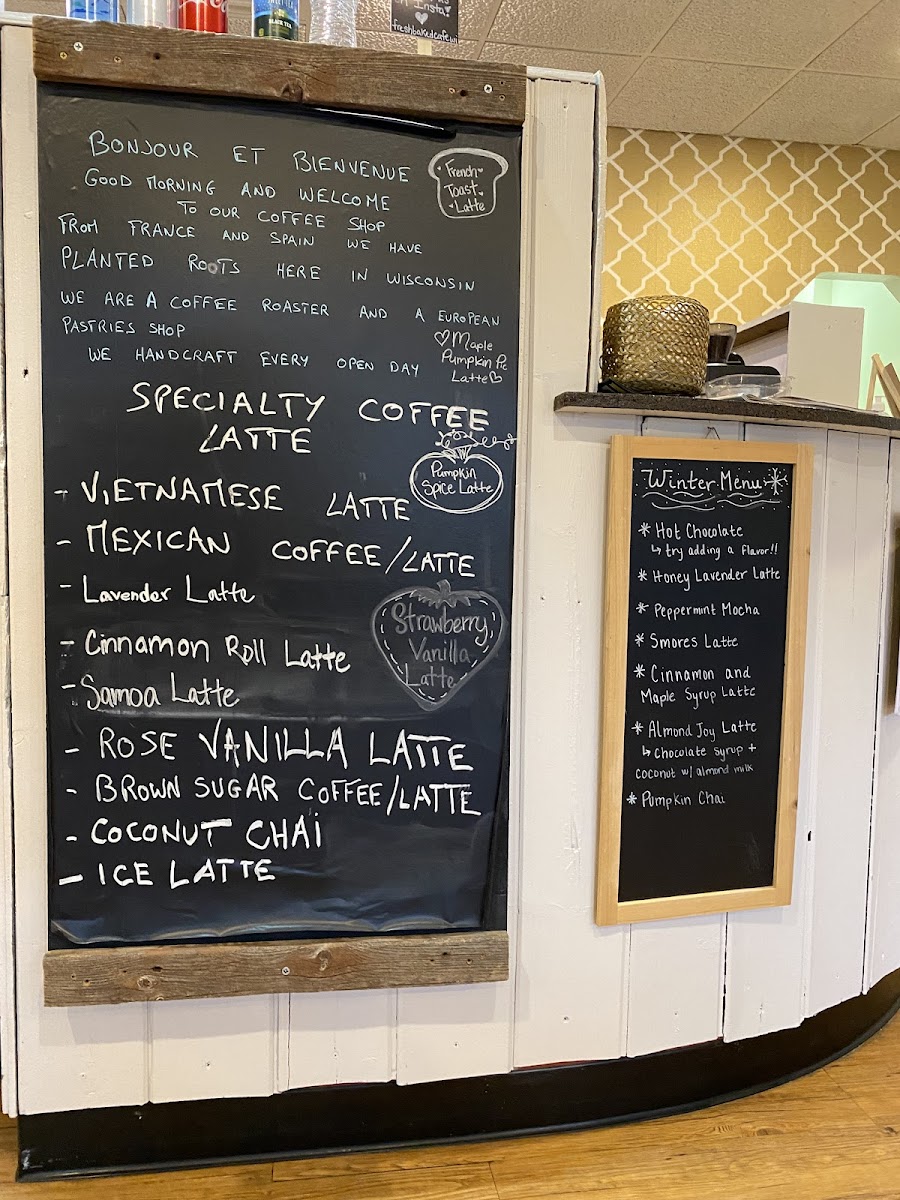 Insta!
freshbakedcafewi
BLACK TEA
BONJOUR ET BIENVENUE
GOOD MORNING AND WELCOME
TO OUR COFFEE SHOP
FROM FRANCE AND SPAIN WE HAVE
PLANTED ROOTS HERE IN WISCONSIN
WE ARE A COFFEE ROASTER AND A EUROPEAN
PASTRIES SHOP
WE HANDCRAFT EVERY OPEN DAY
French
Toast
Latte
Maple
Pumpkin Pie
Latte
SPECIALTY COFFEE
LATTE
Pumpkin
Spice Latte
- VIETNAMESE LATTE
- MEXICAN COFFEE/LATTE
- Lavender Latte
- Cinnamon Roll Latte
- Samoa Latte
Strawberry
Vanilla
Latte
- ROSE VANILLA LATTE
- BROWN SUGAR COFFEE/LATTE
- COCONUT CHAi
- ICE LATTE
Winter Menu
* Hot Chocolate
↳ try adding a flavor!!
* Honey Lavender Latte
* Peppermint Mocha
* Smores Latte
* Cinnamon and
Maple Syrup Latte
* Almond Joy Latte
↳ Chocolate Syrup +
coconut w/ almond milk
* Pumpkin Chai